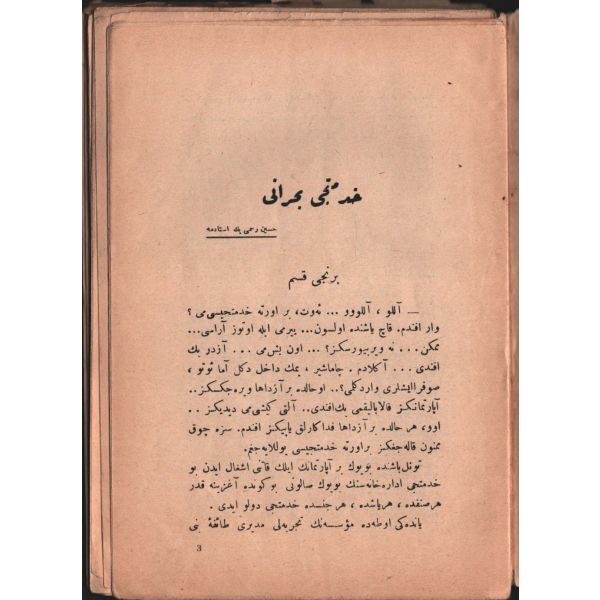 خدمتجی بحرانی
حسین رحمی بك استادمه
برنجی قسم
— آللو ، آللووو ... ئەوت، بر اورته خدمتجیسی‌می ؟
وار افندم. قاچ یاشنده اولسون... یگرمی ایله اوتوز آراسی...
ممكن... نه ویریورسكز؟ ... اون بش‌می ... آزدر بك
افندی... آكلادم . چاماشیر ، یمك داخل دكل آما ئوتو ،
صوفرا ایشلری وار دكلمی ؟.. او حالده بر آز داها ویره جكسكز.
آپارتمانكز قالابالیقمی بك افندی.. آلتی كیشی‌می دیدیكز ..
اوو، هر حالده بر آز داها فداكارلق یاپیكز افندم. سزه چوق
ممنون قاله جغكز بر اورته خدمتجیسی بوللایه جغم.
تونل باشنده بویوك بر آپارتمانك ایلك قاتنی اشغال ایدن بو
خدمتجی اداره خانه سنك بویوك صالونی بوكونده آغزینه قدر
هر صنفده ، هر یاشده ، هر جنسده خدمتجی دولو ایدی .
یانده‌كی اوطه‌ده مؤسسه‌نك تجربه‌لی مدیری طائفهٔ بنی
3